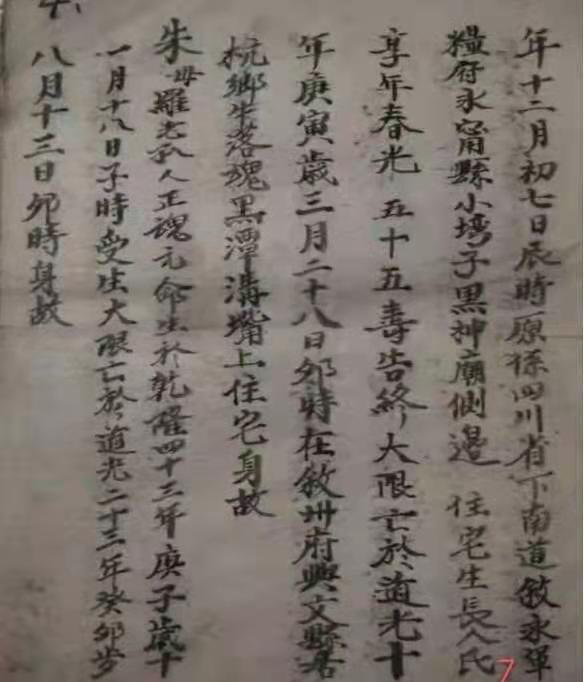 年十二月初七日辰時原係四川省下南道敘永軍
糧府永甯縣小塆子黑神廟側邊 住宅生長人氏
享年春光 五十五壽告終大限亡於道光十
年庚寅歲三月二十八日卯時在敘州府興文縣君
杭鄉牛落魂黑潭溝嘴上住宅身故
朱母羅老孤人正魂元命生於乾隆四十三年庚子歲十
一月十八日子時受生大限亡於道光二十三年癸卯岁
八月十三日卯時身故
7